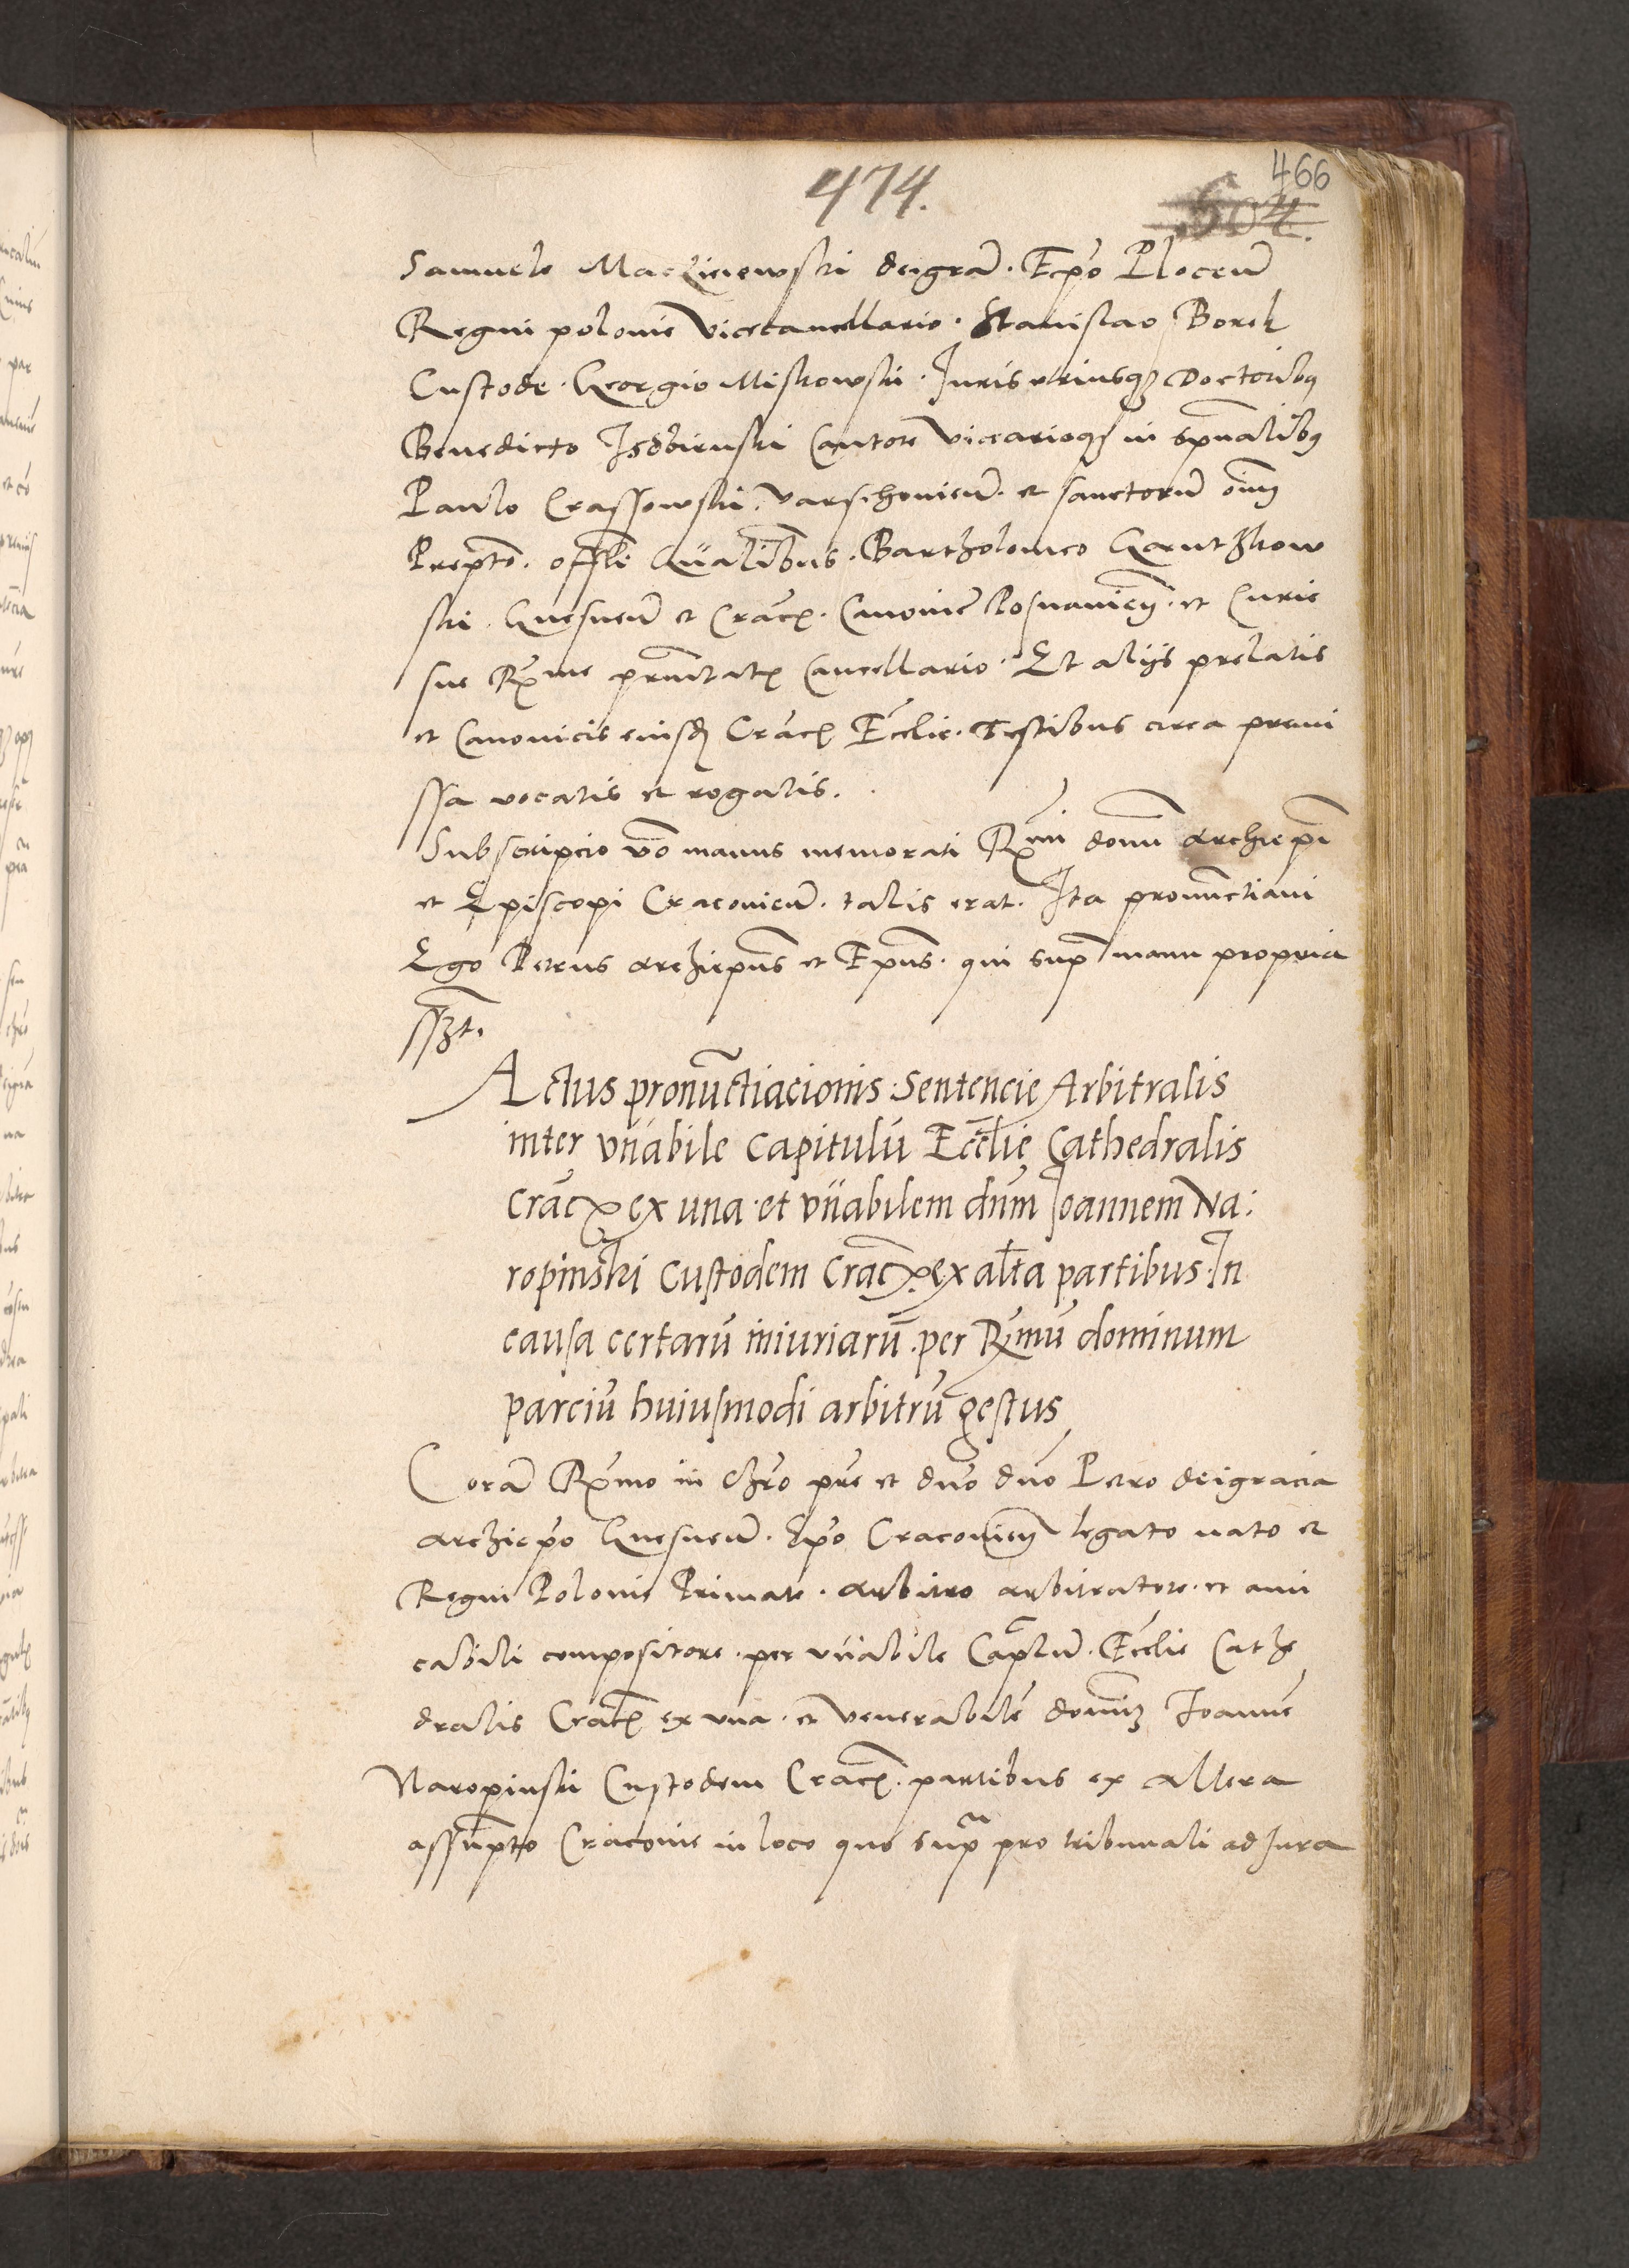 474.
466
504.
Samuele Maczieiewski deigra͂. Epo Plocen͂
Regni polonie Vicecancellario. Stanislao Borek
Custode. Georgio Miskowski. Iuris utriusqꝫ Doctoribꝯ
Benedicto Isdbienski Cantore Vicarioqꝫ in spu͂alibꝯ
Paulo Crassowski. Varschovien͂. et sanctoru͂ oi͂m
Prepto. offli G͂nalibus. Bartholomeo Gantzkow
ski. Gnesnen͂ et Crac͂. Canonic͂ Posnanien͂. et Curie
sue R͂me pr͂nitatis Cancellario. Et alijs prelatis
et Canonicis eiusd͂ Crac͂ Ec͂clie. Testibus circa premi
ssa vocatis et rogatis.
Subscripcio vo͂ manus memorati R͂mi domi͂ archiepi͂
et Episcopi Cracovien͂. talis erat. Ita pronunctiavi
Ego Petrus archiepus͂ et Epus͂. qui sup͂ manu propria
sszt.
Actus pronu͂ctiacionis Sentencie Arbitralis
inter vn͂abile Capitulu͂ Ec͂clie Cathedralis
Crac͂ ex una et vn͂abilem dn͂m Joannem Na:
ropinski Custodem Crac͂. ex alt͂a partibus. In
causa certaru͂ iniuriaru͂. per R͂mu͂ dominum
parciu͂ huiusmodi arbitru͂ gestus
Cora͂ R͂mo in chr͂o pr͂e et dn͂o dn͂o Petro deigracia
archiepo͂ Gnesnen͂. Epo͂ Cracovien͂ legato nato et
Regni Polonie Primate. arbitro arbitratore. et ami
cabili compositore. per vn͂abile Caplu͂m. Ec͂clie Cathe
dralis Crac͂ ex una. et Venerabile͂ domi͂ꝫ Joanne͂
Naropinski Custodem Crac͂. partibus ex altera
assu͂pto Cracovie in loco quo sup͂ pro tribunali ad Jura